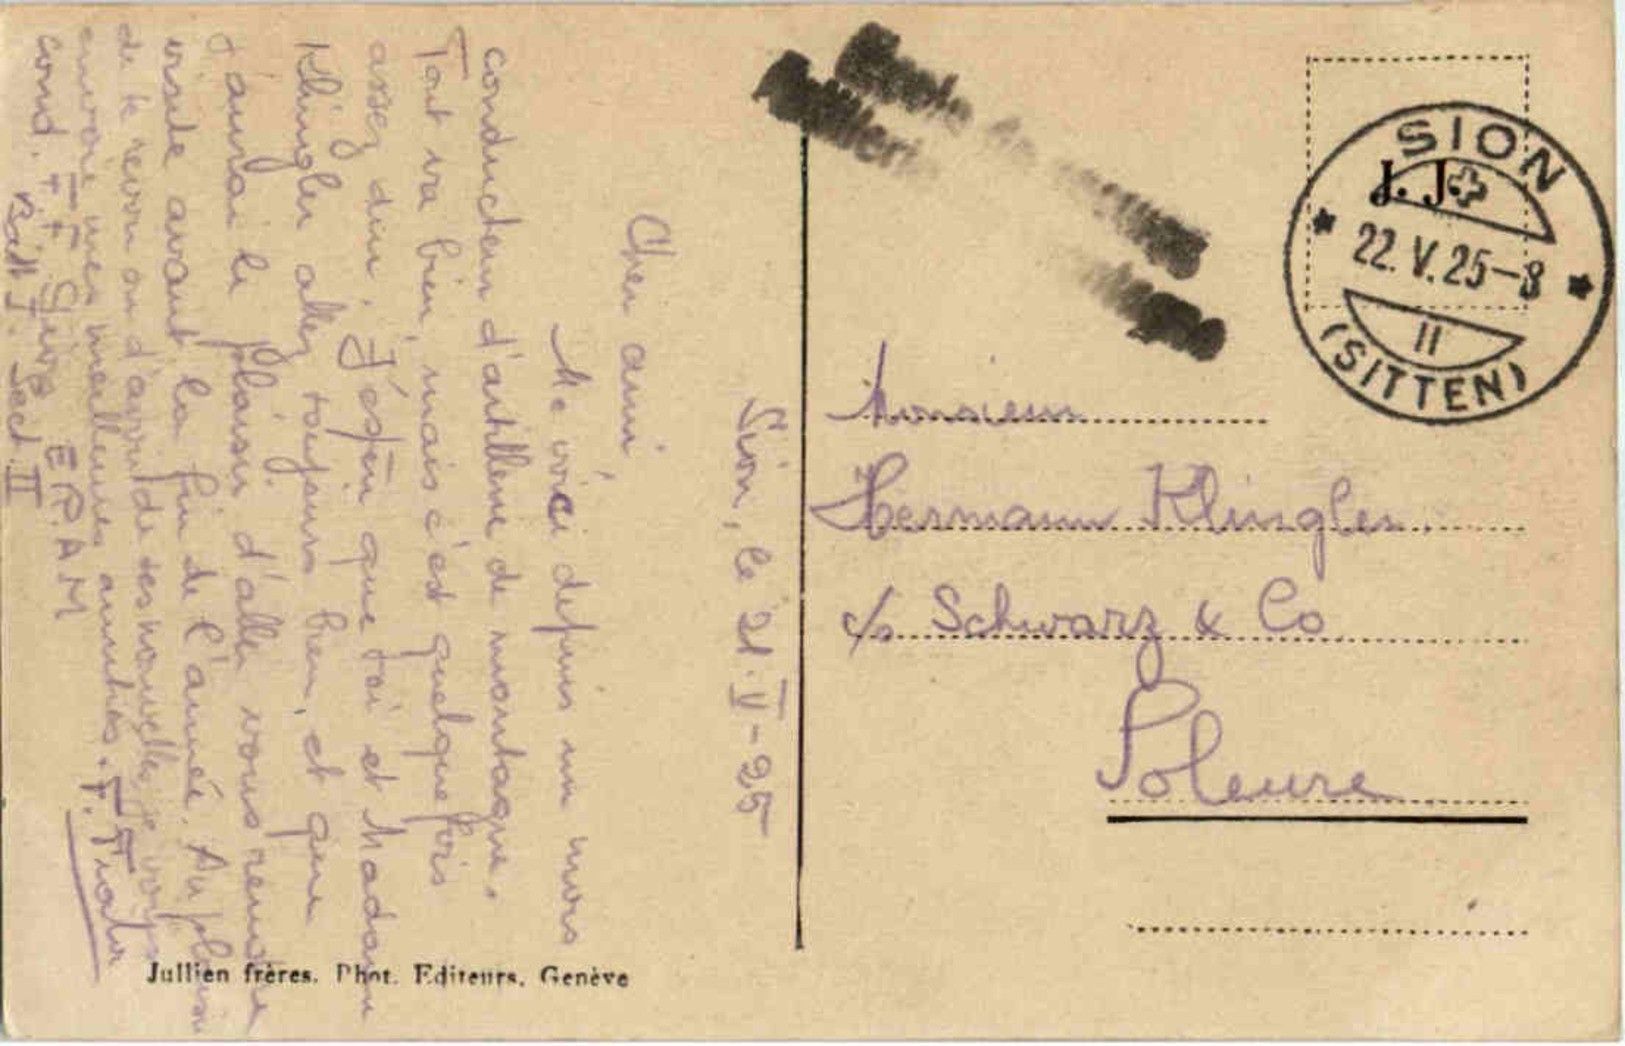 Sion, le 21. V - 25
Cher ami
Me voici depuis un mois
conducteur d'artillerie de montagne.
Tout va bien, mais c'est quelquefois
assez dur. J'espère que toi et Madame
Klingler allez toujours bien, et que
j'aurai le plaisir d'aller vous rendre
visite avant la fin de l'année. Au plaisir
de te revoir ou d'avoir de tes nouvelles, je vous
envoie mes meilleures amitiés. F.
cond. F. E.R.A.M
Batt I. Sect. II
SION
J. J.
22. V. 25-8
II
(SITTEN)
Monsieur
Hermann Klingler
c/o Schwarz & Co
Soleure
Jullien frères. Phot. Editeurs. Genève